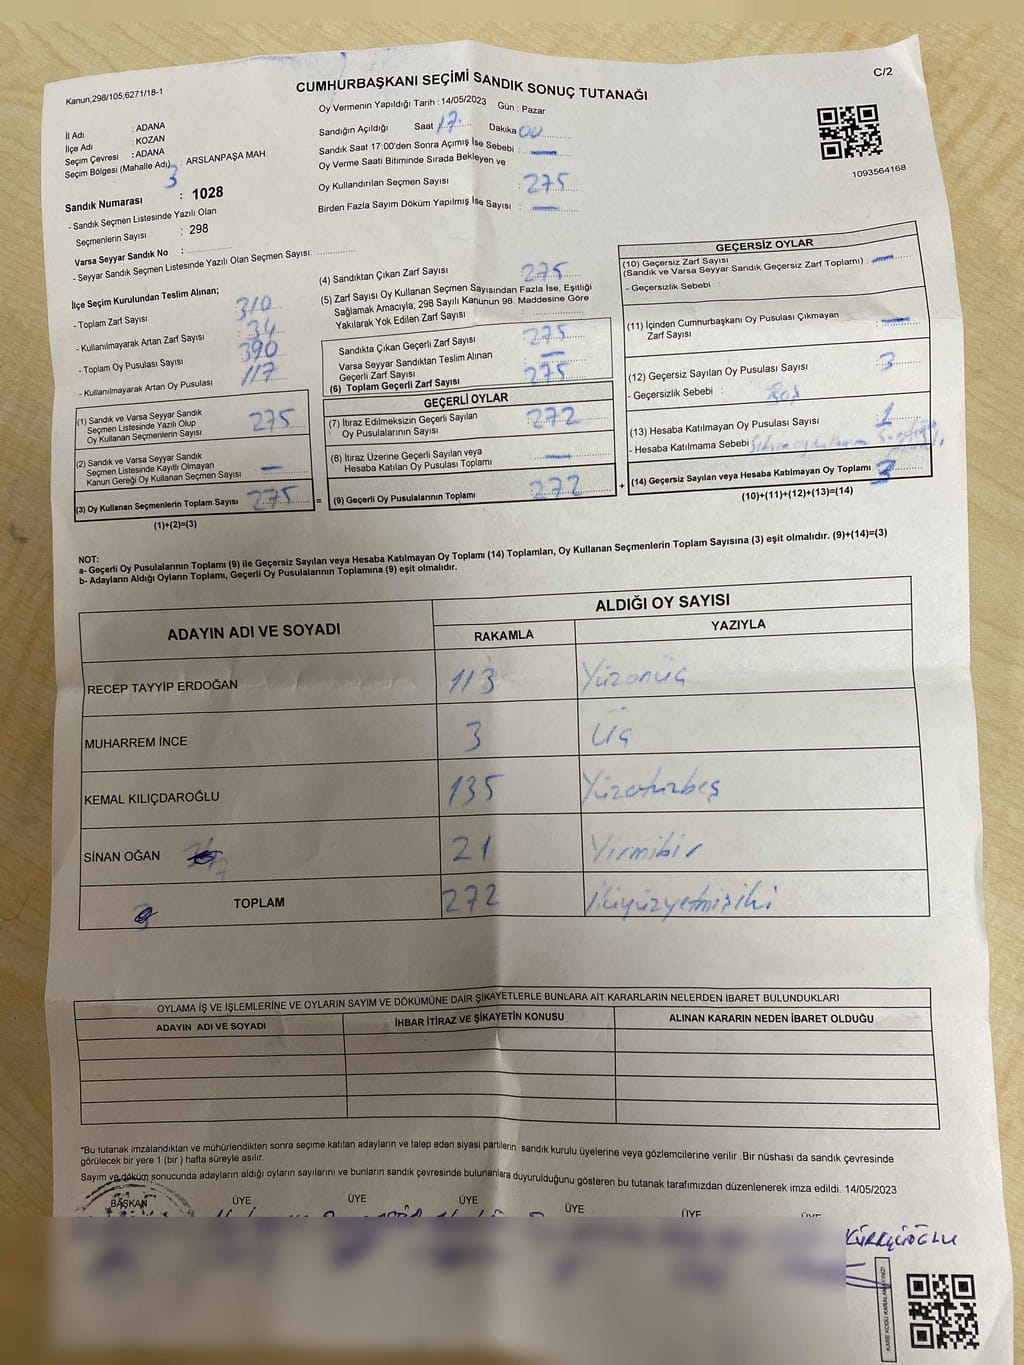 Kanun;298/105;6271/18-1
CUMHURBAŞKANI SEÇİMİ SANDIK SONUÇ TUTANAĞI
C/2
İl Adı : ADANA
İlçe Adı : KOZAN
Seçim Çevresi : ADANA
Seçim Bölgesi (Mahalle Adı) ARSLANPAŞA MAH.
3
Sandık Numarası : 1028
- Sandık Seçmen Listesinde Yazılı Olan
Seçmenlerin Sayısı : 298
Varsa Seyyar Sandık No :
- Seyyar Sandık Seçmen Listesinde Yazılı Olan Seçmen Sayısı:
Oy Vermenin Yapıldığı Tarih : 14/05/2023 Gün : Pazar
Sandığın Açıldığı Saat 17 Dakika 00
Sandık Saat 17:00'den Sonra Açımış İse Sebebi : —
Oy Verme Saati Bitiminde Sırada Bekleyen ve
Oy Kullandırılan Seçmen Sayısı : 275
Birden Fazla Sayım Döküm Yapılmış İse Sayısı : —
1093564168
İlçe Seçim Kurulundan Teslim Alınan;
- Toplam Zarf Sayısı 310
- Kullanılmayarak Artan Zarf Sayısı : 34
- Toplam Oy Pusulası Sayısı 390
- Kullanılmayarak Artan Oy Pusulası 117
(1) Sandık ve Varsa Seyyar Sandık
Seçmen Listesinde Yazılı Olup
Oy Kullanan Seçmenlerin Sayısı 275
(2) Sandık ve Varsa Seyyar Sandık
Seçmen Listesinde Kayıtlı Olmayan
Kanun Gereği Oy Kullanan Seçmen Sayısı : —
(3) Oy Kullanan Seçmenlerin Toplam Sayısı 275 =
(1)+(2)=(3)
(4) Sandıktan Çıkan Zarf Sayısı 275
(5) Zarf Sayısı Oy Kullanan Seçmen Sayısından Fazla İse, Eşitliği
Sağlamak Amacıyla; 298 Sayılı Kanunun 98. Maddesine Göre
Yakılarak Yok Edilen Zarf Sayısı :
Sandıkta Çıkan Geçerli Zarf Sayısı 275
Varsa Seyyar Sandıktan Teslim Alınan
Geçerli Zarf Sayısı —
(6) Toplam Geçerli Zarf Sayısı 275
GEÇERLİ OYLAR
(7) İtiraz Edilmeksizin Geçerli Sayılan
Oy Pusulalarının Sayısı 272
(8) İtiraz Üzerine Geçerli Sayılan veya
Hesaba Katılan Oy Pusulası Toplamı —
(9) Geçerli Oy Pusulalarının Toplamı 272 +
GEÇERSİZ OYLAR
(10) Geçersiz Zarf Sayısı
(Sandık ve Varsa Seyyar Sandık Geçersiz Zarf Toplamı) : —
- Geçersizlik Sebebi :
(11) İçinden Cumhurbaşkanı Oy Pusulası Çıkmayan
Zarf Sayısı —
(12) Geçersiz Sayılan Oy Pusulası Sayısı 3
- Geçersizlik Sebebi : Boş
(13) Hesaba Katılmayan Oy Pusulası Sayısı 1
- Hesaba Katılmama Sebebi
(14) Geçersiz Sayılan veya Hesaba Katılmayan Oy Toplamı 3
(10)+(11)+(12)+(13)=(14)
NOT:
a- Geçerli Oy Pusulalarının Toplamı (9) ile Geçersiz Sayılan veya Hesaba Katılmayan Oy Toplamı (14) Toplamları, Oy Kullanan Seçmenlerin Toplam Sayısına (3) eşit olmalıdır. (9)+(14)=(3)
b- Adayların Aldığı Oyların Toplamı, Geçerli Oy Pusulalarının Toplamına (9) eşit olmalıdır.
ADAYIN ADI VE SOYADI ALDIĞI OY SAYISI
RAKAMLA YAZIYLA
RECEP TAYYİP ERDOĞAN 113 Yüzonüç
MUHARREM İNCE 3 Üç
KEMAL KILIÇDAROĞLU 135 Yüzotuzbeş
SİNAN OĞAN 21 Yirmibir
TOPLAM 272 İkiyüzyetmişiki
OYLAMA İŞ VE İŞLEMLERİNE VE OYLARIN SAYIM VE DÖKÜMÜNE DAİR ŞİKAYETLERLE BUNLARA AİT KARARLARIN NELERDEN İBARET BULUNDUKLARI
ADAYIN ADI VE SOYADI İHBAR İTİRAZ VE ŞİKAYETİN KONUSU ALINAN KARARIN NEDEN İBARET OLDUĞU
*Bu tutanak imzalandıktan ve mühürlendikten sonra seçime katılan adayların ve talep eden siyasi partilerin sandık kurulu üyelerine veya gözlemcilerine verilir .Bir nüshası da sandık çevresinde
görülecek bir yere 1 (bir ) hafta süreyle asılır.
Sayım ve döküm sonucunda adayların aldığı oyların sayılarını ve bunların sandık çevresinde bulunanlara duyurulduğunu gösteren bu tutanak tarafımızdan düzenlenerek imza edildi. 14/05/2023
BAŞKAN ÜYE ÜYE ÜYE ÜYE ÜYE ÜYE
KÜRKÇÜOĞLU
KARE KODU KARALAMAYINIZ!